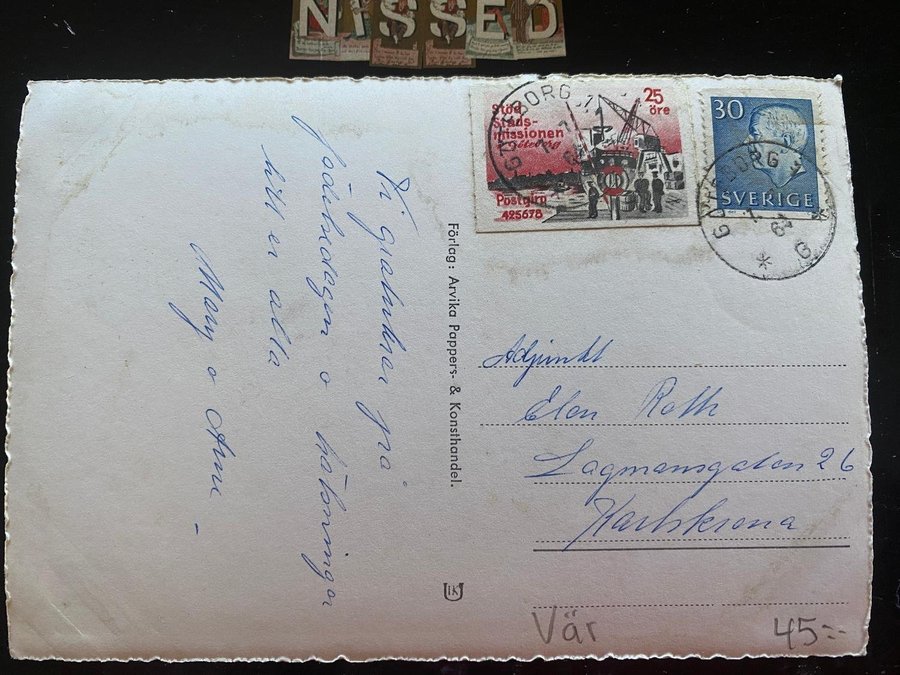 NISSED
Vi gratulerar på
födelsedagen o hälsningar
till er alla
Mary o Arne
Förlag: Arvika Pappers- & Konsthandel.
IK
Stöd
Stads-
missionen
Göteborg
25
öre
Postgiro
425678
GÖTEBORG
30
SVERIGE
GÖTEBORG
Adjunkt
Elon Roth
Lagmansgatan 26
Karlskrona
Vär
45:-